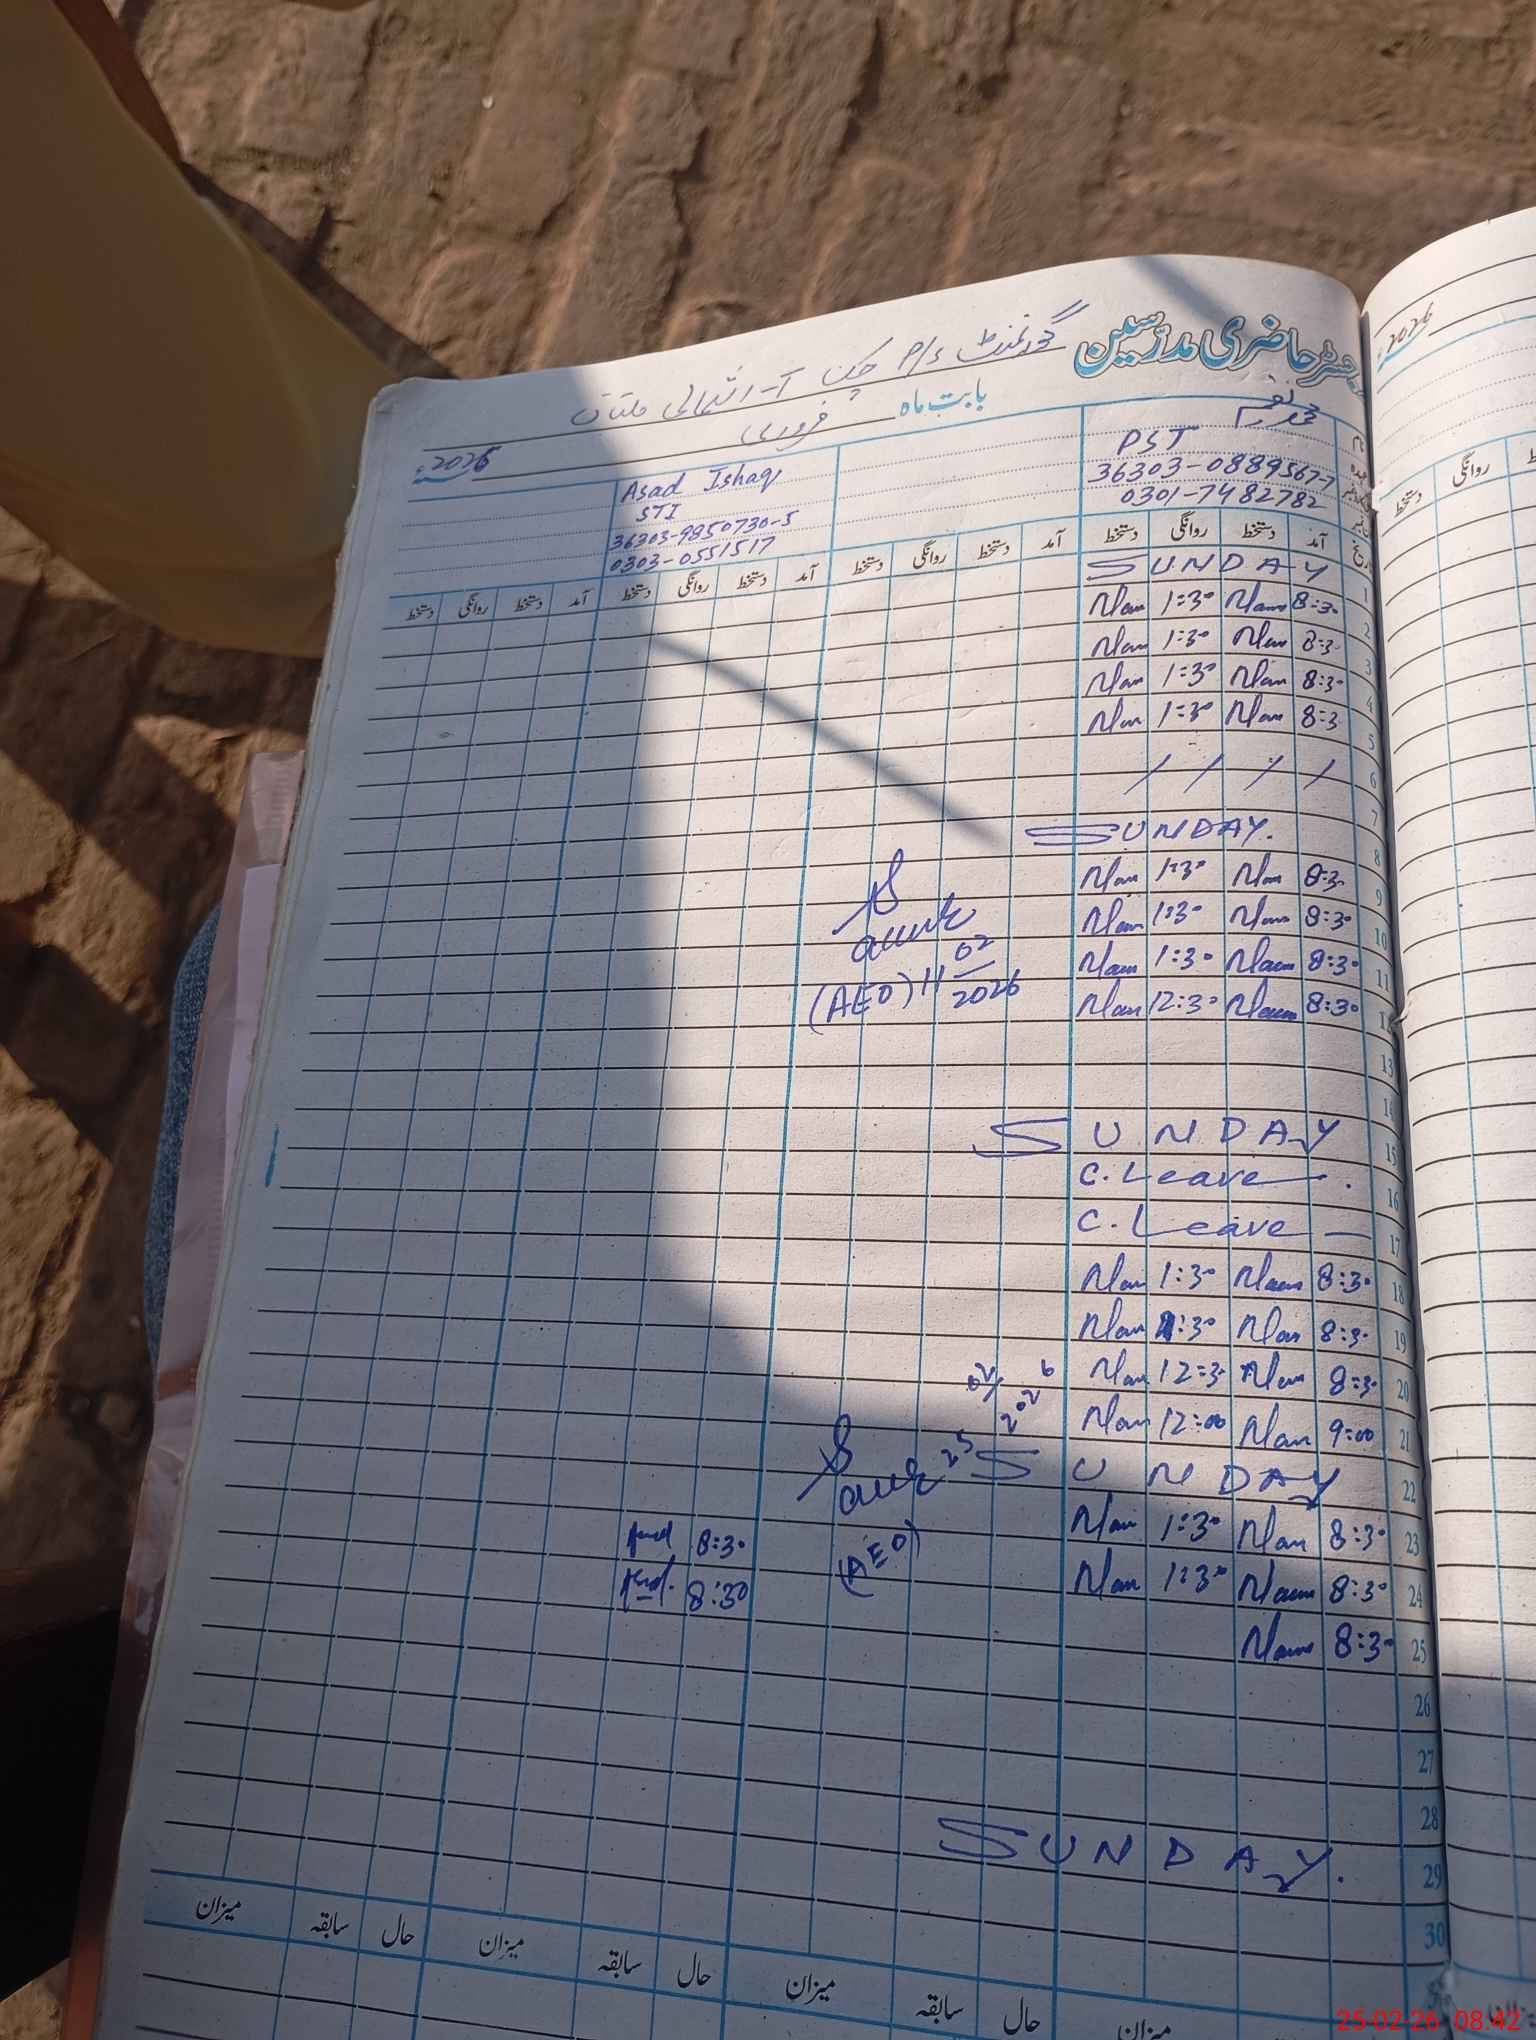 رجسٹر حاضری مدرسین گورنمنٹ P/S چک
بابت ماہ فروری 2026ء
2026ء
محمد نعیم
PST
36303-0889567-7
0301-7482782
Asad Ishaq
STI
36303-9850730-5
0303-0551517
آمد دستخط روانگی دستخط آمد دستخط روانگی دستخط آمد دستخط روانگی دستخط آمد دستخط روانگی دستخط
روانگی دستخط
1 SUNDAY
2 8:30 1:30
3 8:30 1:30
4 8:30 1:30
5 8:30 1:30
6
7
8 SUNDAY.
9 8:30 1:30
10 8:30 1:30
11 8:30 1:30
12 8:30 12:30
(AEO) 11 02/2026
13
14
15 SUNDAY
16 C. Leave
17 C. Leave
18 8:30 1:30
19 8:30 1:30
20 8:30 12:30
21 9:00 12:00
22 SUNDAY
25 02/2026
(AEO)
23 8:30 1:30
24 8:30 1:30 8:30
25 8:30 8:30
26
27
28
29 SUNDAY.
30
میزان حال سابقہ میزان حال سابقہ میزان حال سابقہ میزان
25-02-26 08:42